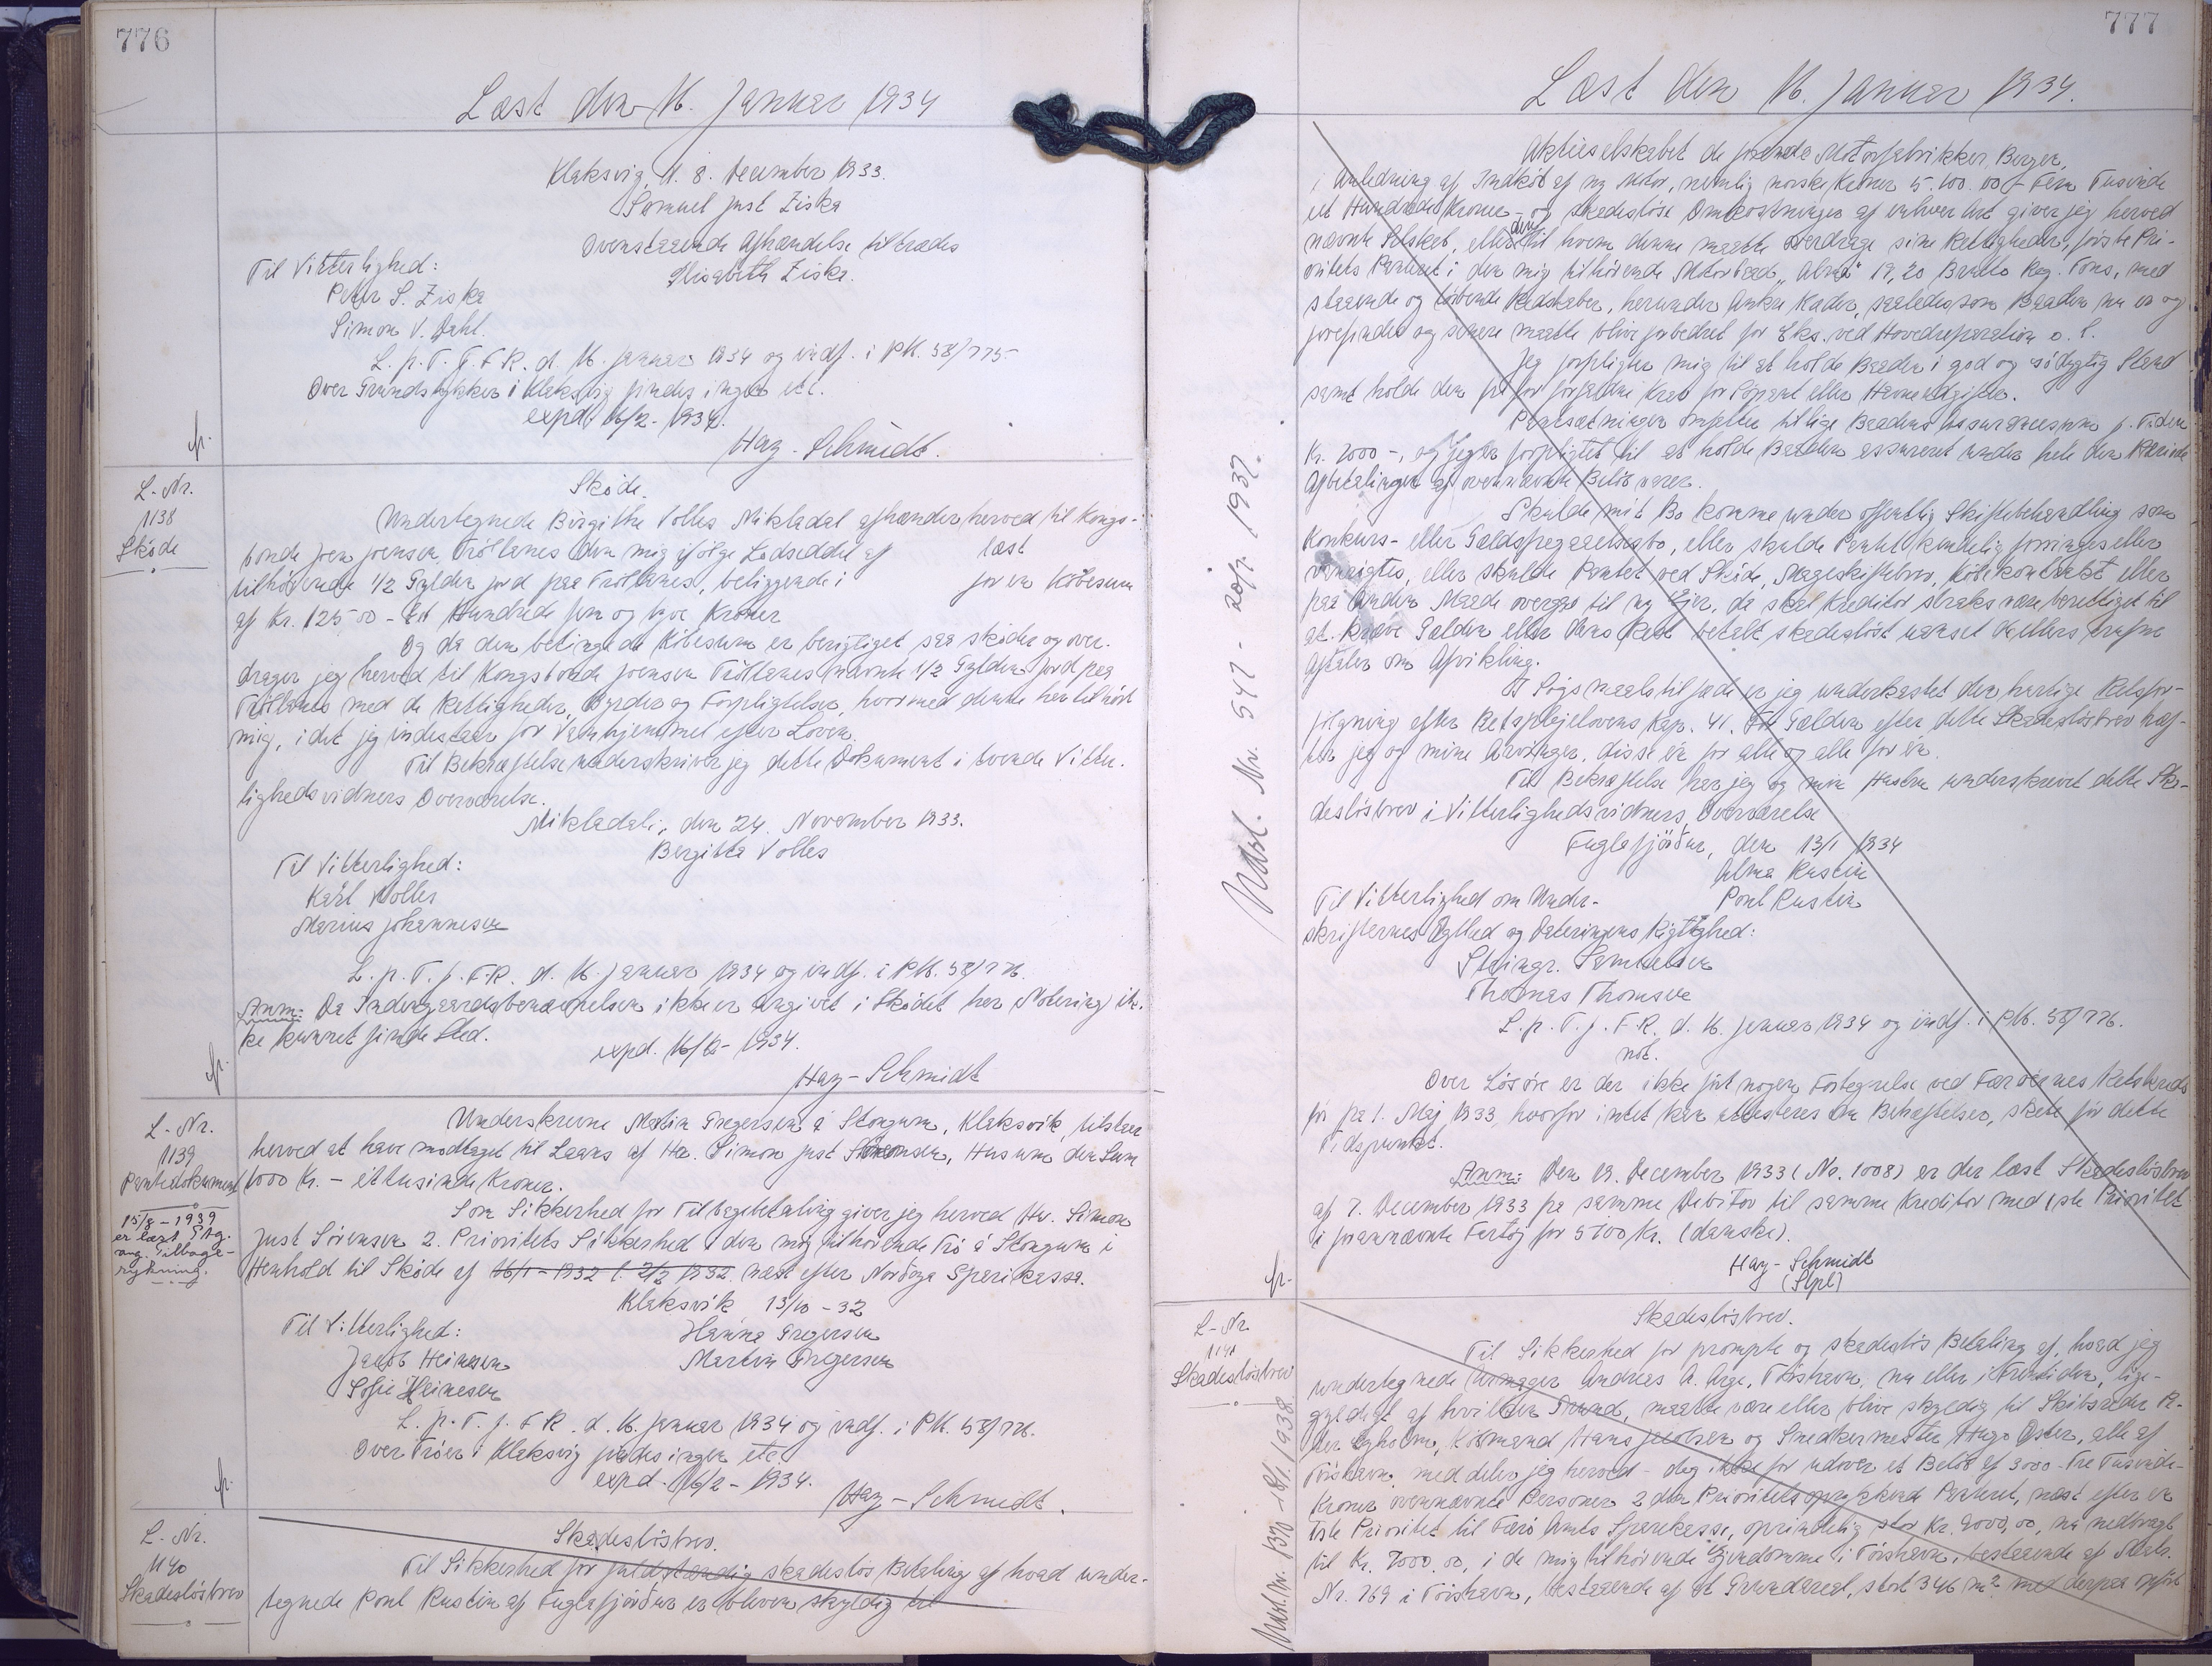 776
Læst den 16. Januar 1934
Klaksvig, d. 8. December 1933.
Samuel Just Ziska
Ovenstaaende Afhændelse tiltrædes
Til Vitterlighed:
Elisabeth Ziska.
Peter S. Ziska
Simon V. Dahl.
L. p. T. f. F. R. d. 16. Januar 1934 og indf. i P.K. 58/775
Over Grundstykker i Klaksvig findes ingen etc.
expd. 16/2 - 1934.
Hay-Schmidt.
L-Nr.
1138
Skøde
Skøde.
Undertegnede Birgithe Volles Mikladal afhænder herved til Kongs-
bonde Joen Joensen Tröllanes den mig ifølge Lodseddel af læst
tilhørende 1/2 Gylden Jord paa Tröllanes, beliggende i for en Købesum
af Kr. 125,00 - Et Hundrede fem og tyve Kroner
Og da den betingede Købesum er berigtiget saa skøder og over-
drager jeg herved til Kongsbonde Joensen Tröllanes nævnte 1/2 Gylden Jord paa
Tröllanes med de Rettigheder, Byrder og Forpligtelser, hvormed denne har tilhørt
mig, idet jeg indestaar for Vanhjemmel efter Loven.
Til Bekræftelse underskriver jeg dette Dokument i tvende Vitter-
lighedsvidners Overværelse.
Mikladali, den 24. November 1933.
Birgitta Volles
Til Vitterlighed:
Karl Volles
Marius Johannesen
L. p. T. f. F. R. d. 16. Januar 1934 og indf. i P.K. 58/776.
Anm: Da Indergaardsbenævnelsen ikke er angivet i Skødet har Notering ik-
ke kunnet finde Sted.
expd. 16/2 - 1934.
Hay-Schmidt
L-Nr.
1139
Pantedokument
15/8 - 1939
er læst
ang. Tilbage-
rykning.
Underskrevne Martin Gregersen á Stongum, Klaksvík, tilstaar
herved at have modtaget til Laans af Hr. Simon Just Sörensen, Husum den Sum
1000 Kr. - ettusinde Kroner.
Som Sikkerhed for Tilbagebetaling giver jeg herved Hr. Simon
Just Sörensen 2. Prioritets Sikkerhed i den mig tilhørende Trö á Stongum i
Henhold til Skøde af 16/1 - 1932 l. 2/2 1932 næst efter Norðoya Sparikassa.
Klaksvík 13/10 - 32
Til Vitterlighed:
Hanna Gregersen
Jacob Heinesen
Martin Gregersen
Sofie Heinesen
L. p. T. f. F. R. d. 16. Januar 1934 og indf. i P.K. 58/776.
Over Tröer i Klaksvig findes ingen etc.
expd. 16/2 - 1934.
Hay-Schmidt.
L-Nr.
1140
Skadesløsbrev
Skadesløsbrev.
Til Sikkerhed for fuldstændig skadesløs Betaling af hvad under-
tegnede Poul Rustin af Fuglafjørður er bleven skyldig til
777
Læst den 16. Januar 1934.
Aktieselskabet de forenede Motorfabrikker, Bergen,
i Anledning af Indkøb af ny Motor, nemlig norske Kroner 5.100.00 - Fem Tusinde
et Hundrede Kroner - og skadesløse Omkostninger af enhver Art giver jeg herved
nævnte Selskab, eller den til hvem denne maatte overdrage sine Rettigheder, første Pri-
oritets Panteret i den mig tilhørende Motorbaad "Alma" 19,20 Brutto Reg. Tons, med
staaende og løbende Redskaber, herunder Anker, Kæder, saaledes som Baaden nu er og
forefindes og senere maatte blive forbedret for Eks. ved Hovedreparation o. l.
Jeg forpligter mig til at holde Baaden i god og sødygtig Stand
samt holde den fri for forfaldne Krav for Søpant eller Havneudgifter.
Pantsætningen omfatter tillige Baadens Assurancesum p. T. den
Kr. 2000 -, og jeg er forpligtet til at holde Baaden assureret under hele den Periode
Afbetalingen af ovennævnte Beløb varer.
Skulde mit Bo komme under offentlig Skiftebehandling som
Konkurs- eller Gældsfragaaelsesbo, eller skulde Pantet kendelig forringes eller
vanrøgtes, eller skulde Pantet ved Skøde, Mageskiftebrev, Købekontrakt eller
paa Anden Maade overgaa til ny Ejer, da skal Kreditor straks være berettiget til
at kræve Gælden eller dens Rest betalt skadesløst uanset de ellers trufne
Aftaler om Afvikling.
I Søgsmaalstilfælde er jeg underkastet den hurtige Retsfor-
følgning efter Retsplejelovens Kap. 41. For Gælden efter dette Skadesløsbrev hæf-
ter jeg og mine Arvinger, disse én for alle og alle for én.
Til Bekræftelse har jeg og min Hustru underskrevet dette Ska-
desløsbrev i Vitterlighedsvidners Overværelse
Fuglafjørður, den 13/1 1934
Alma Rustin
Til Vitterlighed om Under-
Poul Rustin
skrifternes Ægthed og Dateringens Rigtighed:
Steingr. Samuelsen
Thomas Thomsen
L. p. T. f. F. R. d. 16. Januar 1934 og indf. i P.K. 58/776.
not.
Over Løsøre er der ikke ført nogen Fortegnelse ved Færøernes Retskreds
før fra 1. Maj 1933, hvorfor intet kan attesteres om Behæftelser, skete før dette
Tidspunkt.
Anm: Den 19. December 1933 (No. 1008) er der læst Skadesløsbrev
af 7. December 1933 fra samme Debitor til samme Kreditor med 1ste Prioritet
i forannævnte Fartøj for 5100 Kr. (danske).
Hay-Schmidt
Udsl. Nr. 547 - 20/7 1937.
L-Nr.
1141
Skadesløsbrev
Skadesløsbrev.
Til Sikkerhed for prompte og skadesløs Betaling af, hvad jeg
undertegnede Urmager Andreas A. Arge, Tórshavn, nu eller i Fremtiden, lige-
gyldigt af hvilken Grund, maatte være eller blive skyldig til Skibsreder
Købmand Hans Jacobsen og Snedkermester Hugo Øster, alle af
Tórshavn, meddeler jeg herved - dog ikke for udover et Beløb af 3000 - Tre Tusinde -
Kroner ovennævnte Personer 2den Prioritets oprykkende Panteret, næst efter en
1ste Prioritet til Færø Amts Sparekasse, oprindelig stor Kr. 9000,00, nu nedbragt
til Kr. 7000,00, i de mig tilhørende Ejendomme i Tórshavn, bestaaende af Matr.
Nr. 769 i Tórshavn, bestaaende af et Grundareal, stort 346 m² med derpaa opført
Udsl. Nr. 1370 18/1 1938.